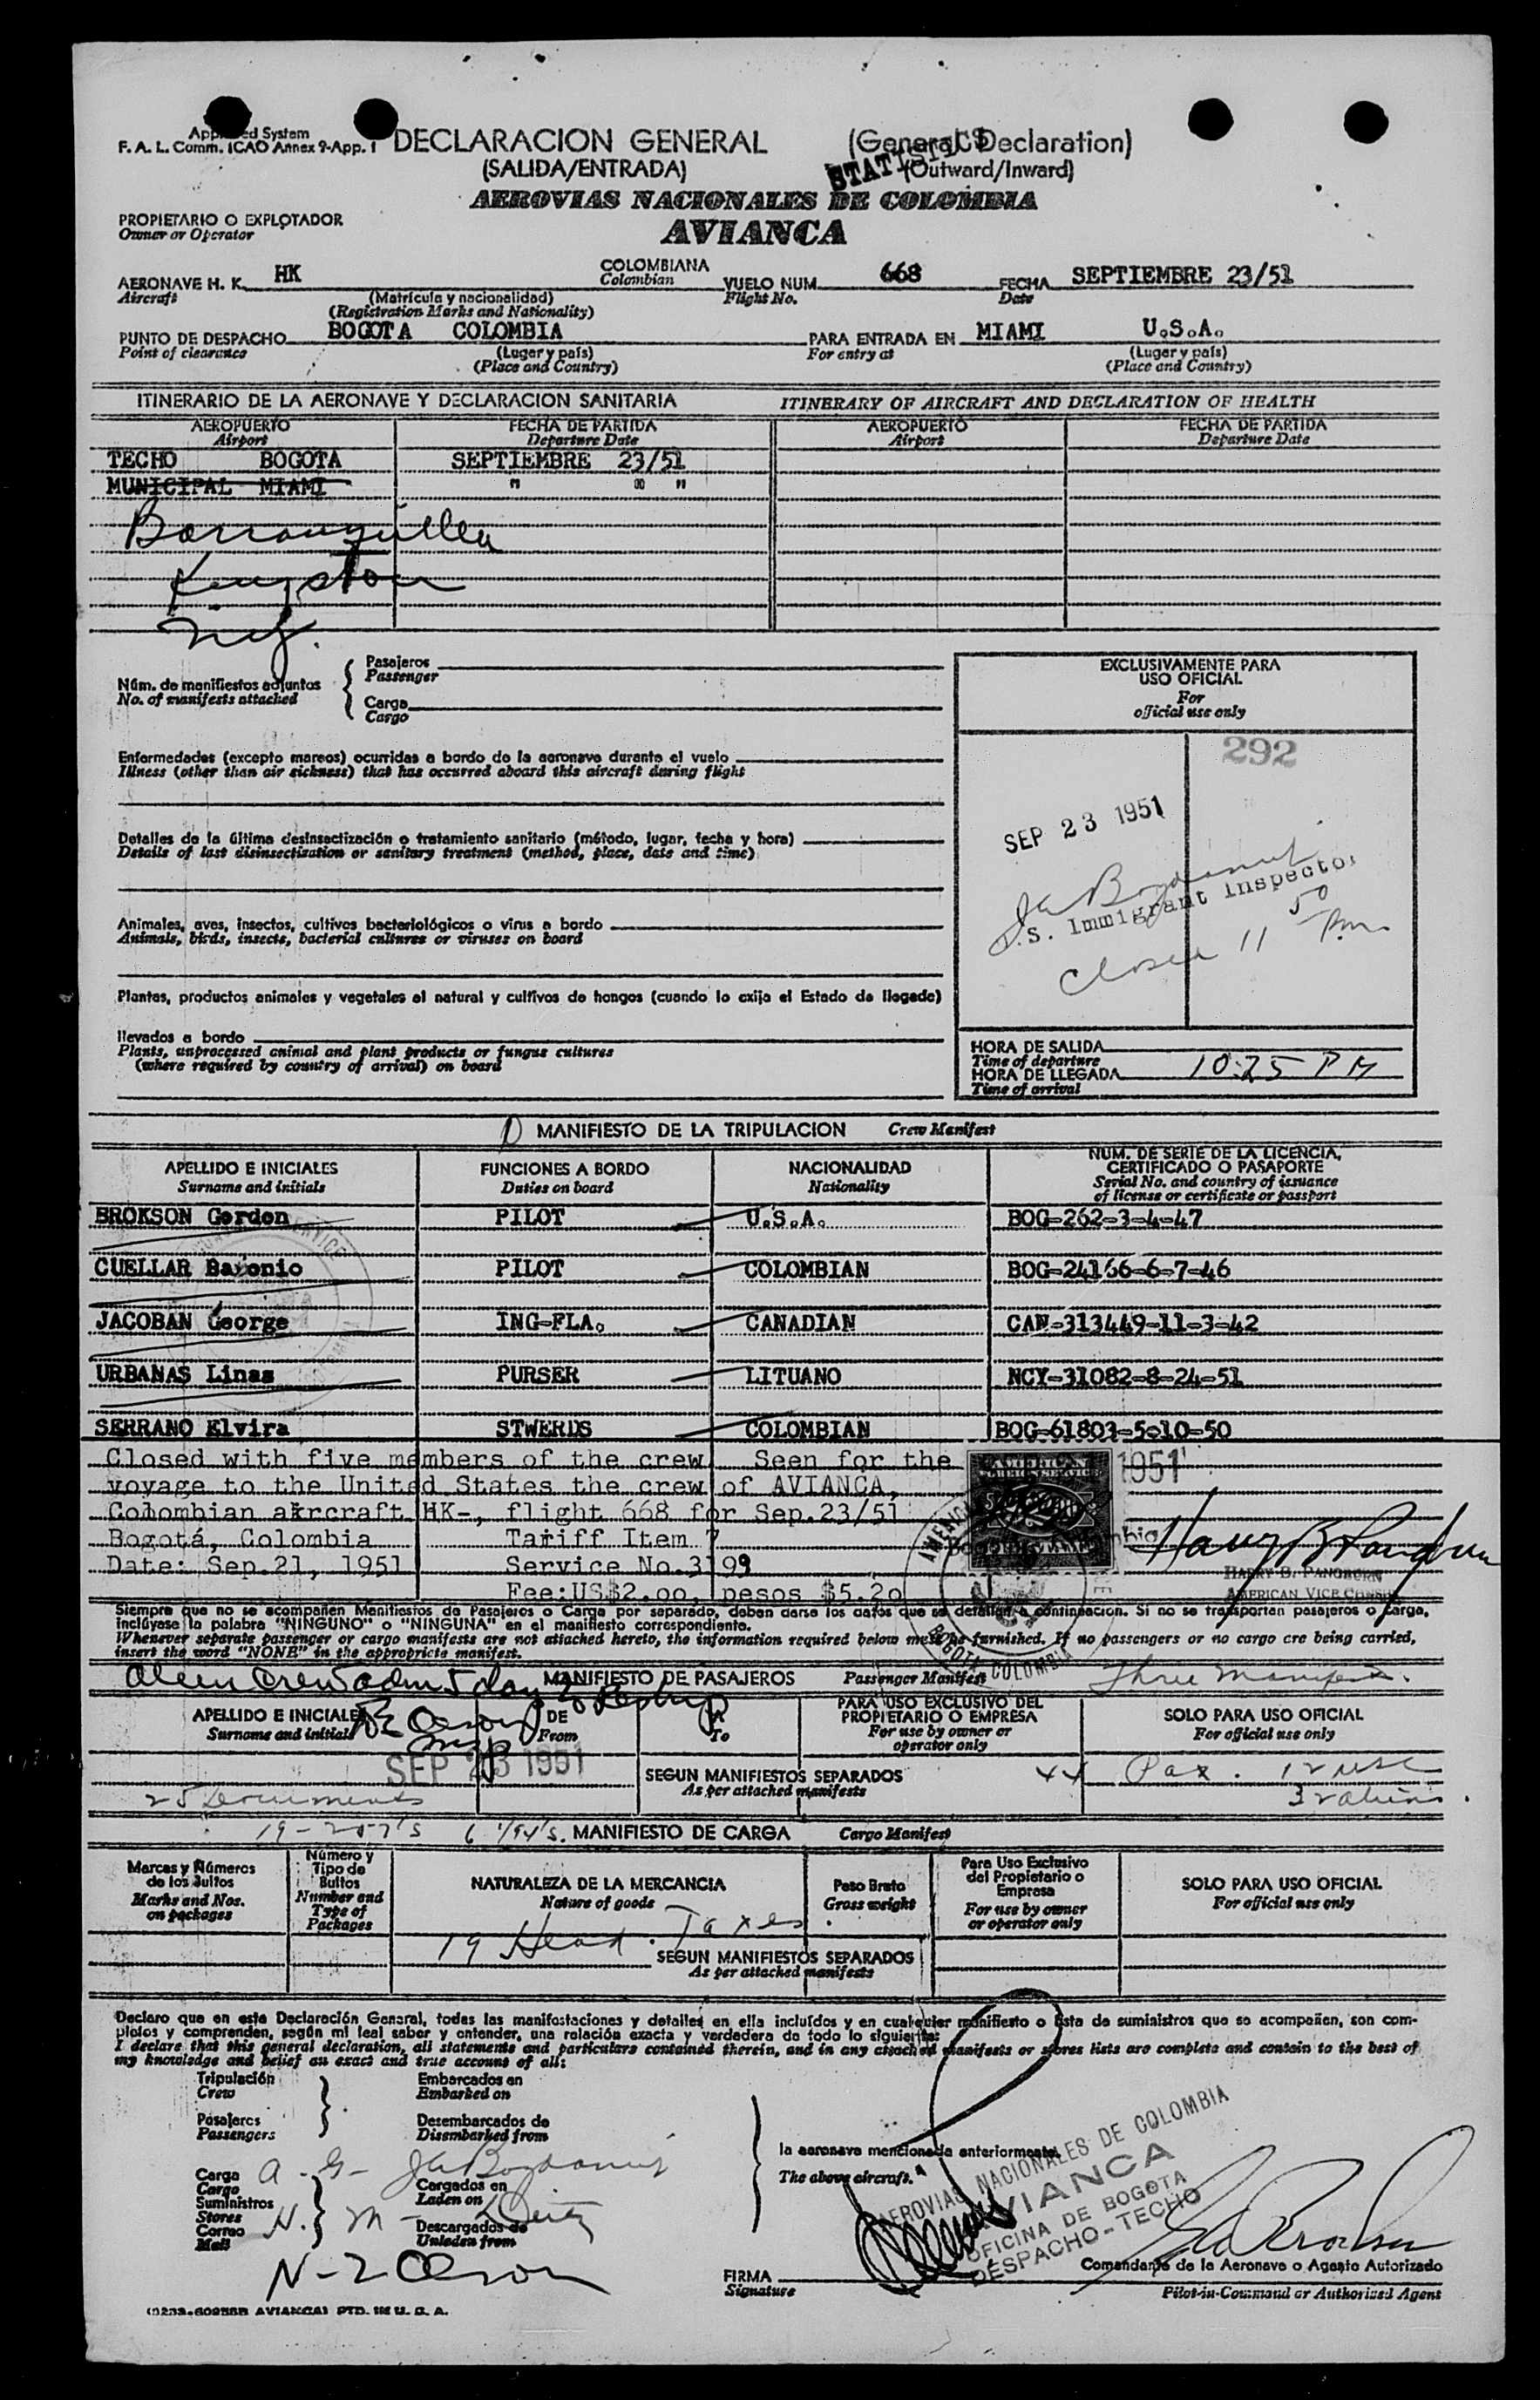 Approved System
F. A. L. Comm. ICAO Annex 9-App. 1
DECLARACION GENERAL (General Declaration)
(SALIDA/ENTRADA) (Outward/Inward)
STATISTICS
AEROVIAS NACIONALES DE COLOMBIA
AVIANCA
PROPIETARIO O EXPLOTADOR
Owner or Operator
AERONAVE H. K. HK COLOMBIANA VUELO NUM. 668 FECHA SEPTIEMBRE 23/51
Aircraft Colombian Flight No. Date
(Matrícula y nacionalidad)
(Registration Marks and Nationality)
PUNTO DE DESPACHO BOGOTA COLOMBIA PARA ENTRADA EN MIAMI U.S.A.
Point of clearance (Lugar y país) For entry at (Lugar y país)
(Place and Country) (Place and Country)
ITINERARIO DE LA AERONAVE Y DECLARACION SANITARIA ITINERARY OF AIRCRAFT AND DECLARATION OF HEALTH
AEROPUERTO FECHA DE PARTIDA AEROPUERTO FECHA DE PARTIDA
Airport Departure Date Airport Departure Date
TECHO BOGOTA SEPTIEMBRE 23/51
MUNICIPAL MIAMI " " "
Barranquilla
Kingston
NY.
Pasajeros
Passenger
Núm. de manifiestos adjuntos
No. of manifests attached
Carga
Cargo
EXCLUSIVAMENTE PARA
USO OFICIAL
For
official use only
292
SEP 23 1951
Enfermedades (excepto mareos) ocurridas a bordo de la aeronave durante el vuelo
Illness (other than air sickness) that has occurred aboard this aircraft during flight
Detalles de la última desinsectización o tratamiento sanitario (método, lugar, fecha y hora)
Details of last disinsectization or sanitary treatment (method, place, date and time)
.S. Immigrant Inspector
Closed 11 50 Pm.
Animales, aves, insectos, cultivos bacteriológicos o virus a bordo
Animals, birds, insects, bacterial cultures or viruses on board
Plantas, productos animales y vegetales al natural y cultivos de hongos (cuando lo exija el Estado de llegada)
llevados a bordo
Plants, unprocessed animal and plant products or fungus cultures
(where required by country of arrival) on board
HORA DE SALIDA
Time of departure
HORA DE LLEGADA 10:25 PM
Time of arrival
MANIFIESTO DE LA TRIPULACION Crew Manifest
APELLIDO E INICIALES FUNCIONES A BORDO NACIONALIDAD NUM. DE SERIE DE LA LICENCIA, CERTIFICADO O PASAPORTE
Surname and initials Duties on board Nationality Serial No. and country of issuance of license or certificate or passport
BROKSON Gordon PILOT U.S.A. BOG-262-3-4-47
CUELLAR Baronio PILOT COLOMBIAN BOG-24166-6-7-46
JACOBAN George ING-FLA. CANADIAN CAN-313449-11-3-42
URBANAS Linas PURSER LITUANO NCY-31082-8-24-51
SERRANO Elvira STWERDS COLOMBIAN BOG-61803-5-10-50
Closed with five members of the crew Seen for the
voyage to the United States the crew of AVIANCA,
Colombian aircraft HK-, flight 668 for Sep.23/51
Bogotá, Colombia Tariff Item 7
Date: Sep.21, 1951 Service No.3199
Fee:US$2.oo, pesos $5.20
1951
Harry B Pangburn
HARRY B. PANGBURN
AMERICAN VICE CONSUL
BOGOTA COLOMBIA
Siempre que no se acompañen Manifiestos de Pasajeros o Carga por separado, deben darse los datos que se detallan a continuacion. Si no se transportan pasajeros o carga,
inclúyase la palabra "NINGUNO" o "NINGUNA" en el manifiesto correspondiente.
Whenever separate passenger or cargo manifests are not attached hereto, the information required below must be furnished. If no passengers or no cargo are being carried,
insert the word "NONE" in the appropriate manifest.
MANIFIESTO DE PASAJEROS Passenger Manifest
Three Manifests.
APELLIDO E INICIALES DE A PARA USO EXCLUSIVO DEL PROPIETARIO O EMPRESA SOLO PARA USO OFICIAL
Surname and initials From To For use by owner or operator only For official use only
SEP 23 1951
SEGUN MANIFIESTOS SEPARADOS 44 Pax. 12 USC
As per attached manifests 32 aliens.
25 Documents
19-257's 6 1/94's. MANIFIESTO DE CARGA Cargo Manifest
Marcas y Números de los Bultos Número y Tipo de Bultos NATURALEZA DE LA MERCANCIA Peso Bruto Para Uso Exclusivo del Propietario o Empresa SOLO PARA USO OFICIAL
Marks and Nos. on packages Number and Type of Packages Nature of goods Gross weight For use by owner or operator only For official use only
19 Head. Taxes.
SEGUN MANIFIESTOS SEPARADOS
As per attached manifests
Declaro que en esta Declaración General, todas las manifestaciones y detalles en ella incluídos y en cualquier manifiesto o lista de suministros que se acompañen, son com-
pletos y comprenden, según mi leal saber y entender, una relación exacta y verdadera de todo lo siguiente:
I declare that this general declaration, all statements and particulars contained therein, and in any attached manifests or stores lists are complete and contain to the best of
my knowledge and belief an exact and true account of all:
Tripulación Embarcados en
Crew Embarked on
Pasajeros Desembarcados de
Passengers Disembarked from
la aeronave mencionada anteriormente.
The above aircraft.
Carga Cargados en
Cargo Laden on
Suministros
Stores
Correo Descargados de
Mail Unladen from
AEROVIAS NACIONALES DE COLOMBIA
AVIANCA
OFICINA DE BOGOTA
DESPACHO-TECHO
Comandante de la Aeronave o Agente Autorizado
FIRMA
Signature
Pilot-in-Command or Authorized Agent
AVIANCA) PTD. IN U. S. A.